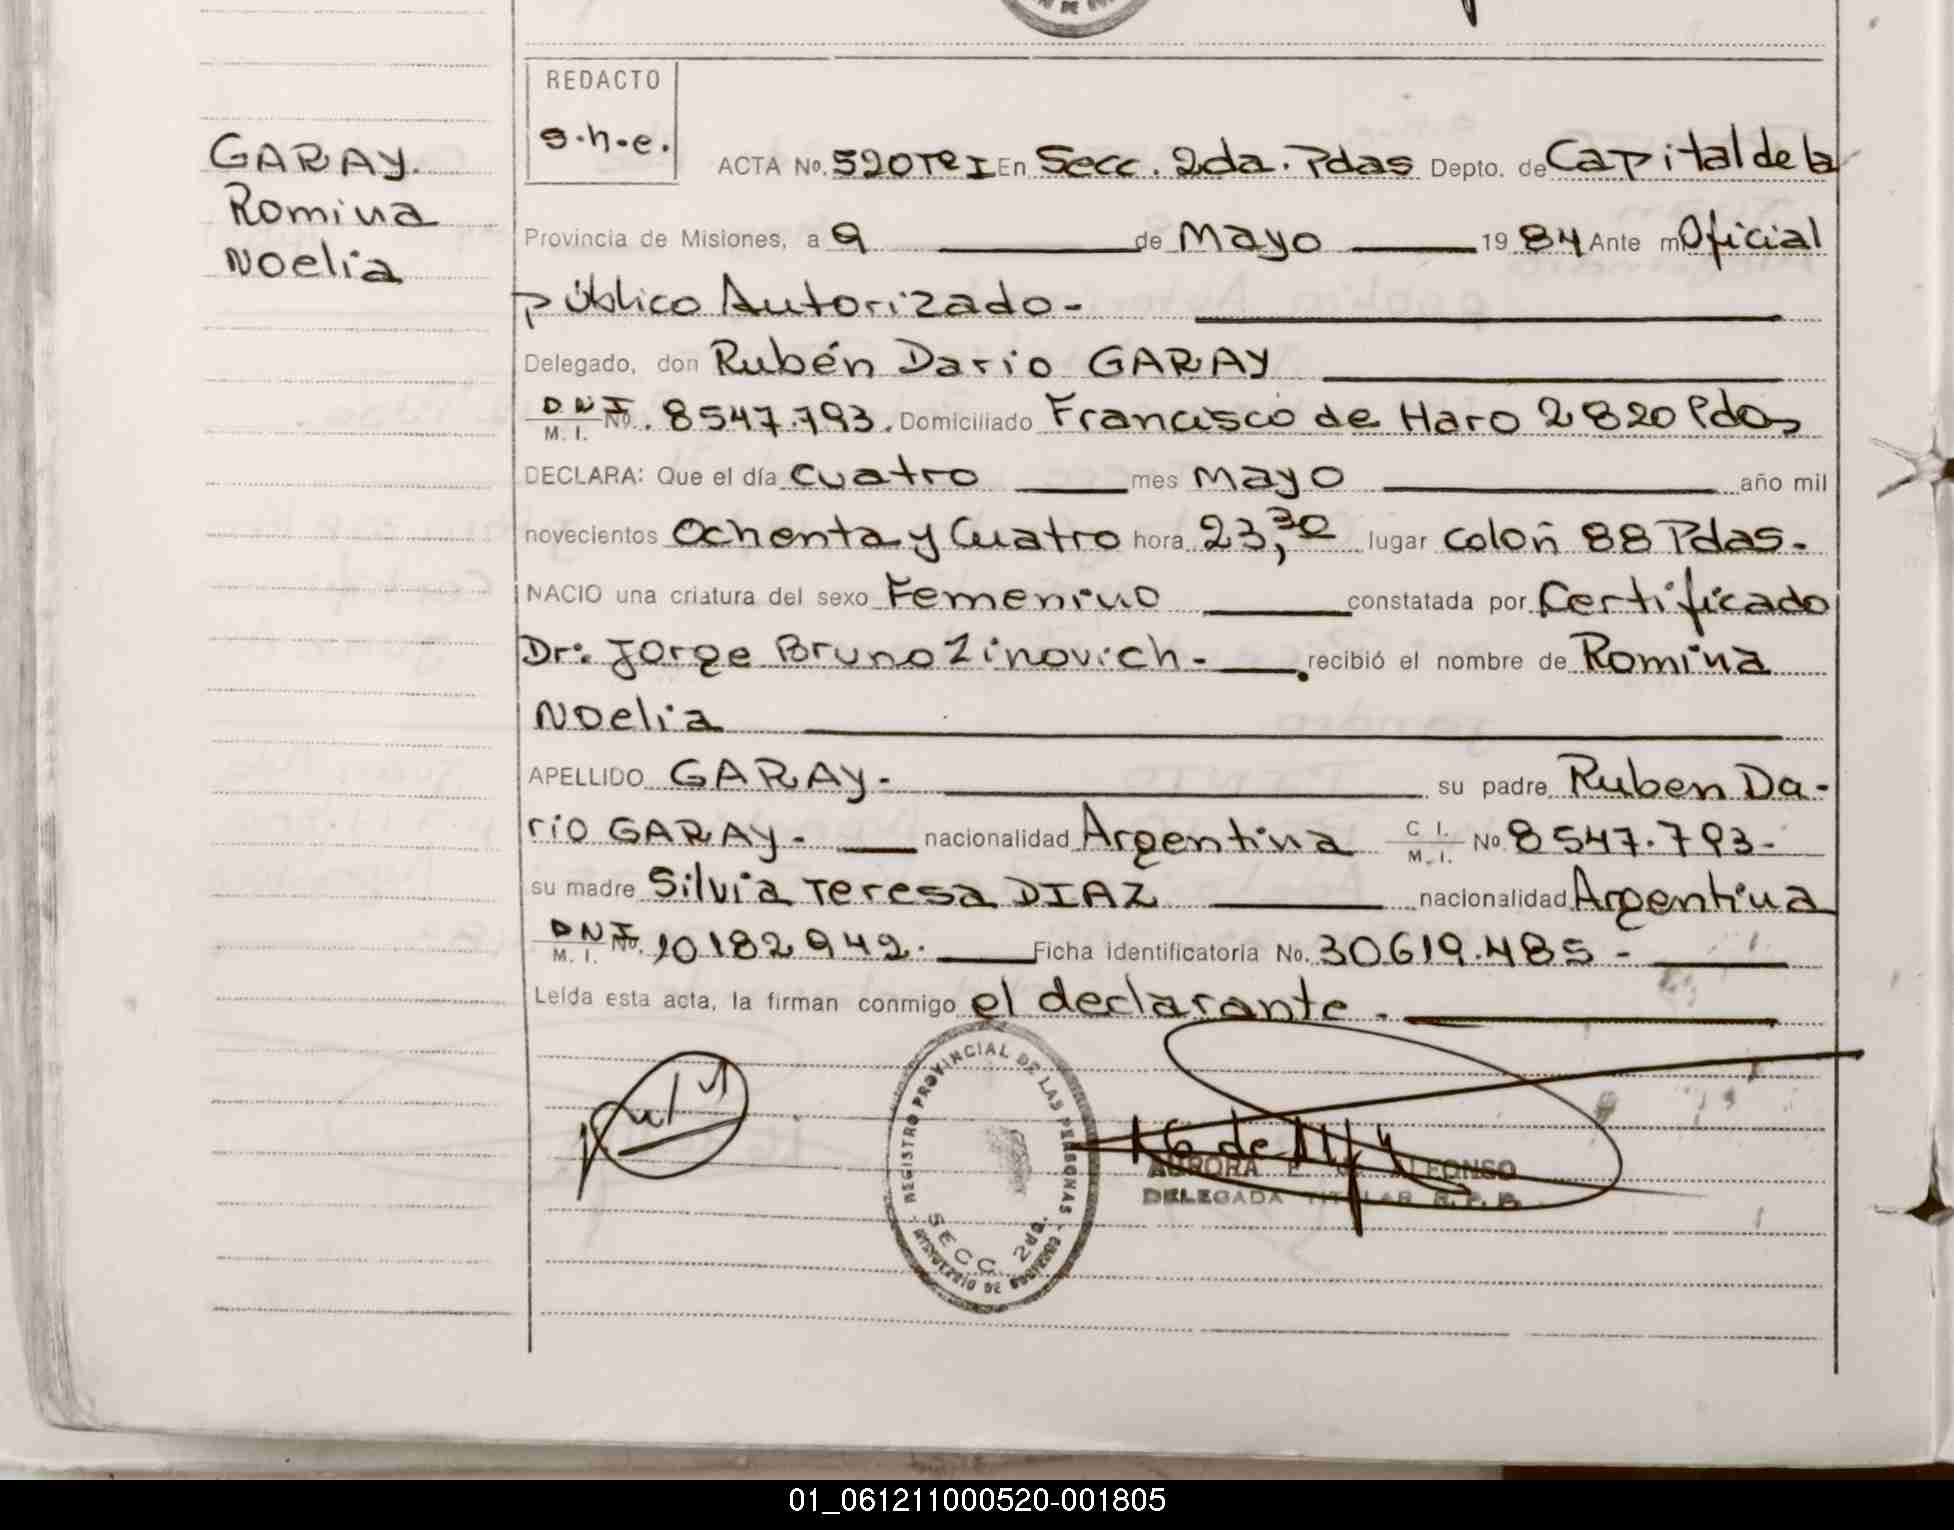 REDACTO
s.h.e.
GARAY.
Romina
Noelia
ACTA No. 520 Tº I En Secc. 2da. Pdas Depto. de Capital de la
Provincia de Misiones, a 9 de Mayo 1984 Ante mi Oficial
público Autorizado-
Delegado, don Rubén Dario GARAY
DNI M. I. No. 8547.793. Domiciliado Francisco de Haro 2820 Pdas
DECLARA: Que el día cuatro mes Mayo año mil
novecientos Ochenta y Cuatro hora 23,30 lugar Colón 88 Pdas.
NACIO una criatura del sexo Femenino constatada por Certificado
Dr: Jorge Bruno Zinovich- recibió el nombre de Romina
Noelia
APELLIDO GARAY- su padre Ruben Da-
rio GARAY- nacionalidad Argentina C I. M. I. No 8547.793-
su madre Silvia Teresa DIAZ nacionalidad Argentina
DNI M. I. No. 10182942. Ficha identificatoria No. 30619.485-
Leída esta acta, la firman conmigo el declarante.
REGISTRO PROVINCIAL DE LAS PERSONAS
SECC. 2da.
MINISTERIO DE GOBIERNO
AURORA ALFONSO
DELEGADA TITULAR R. P. P.
01_061211000520-001805